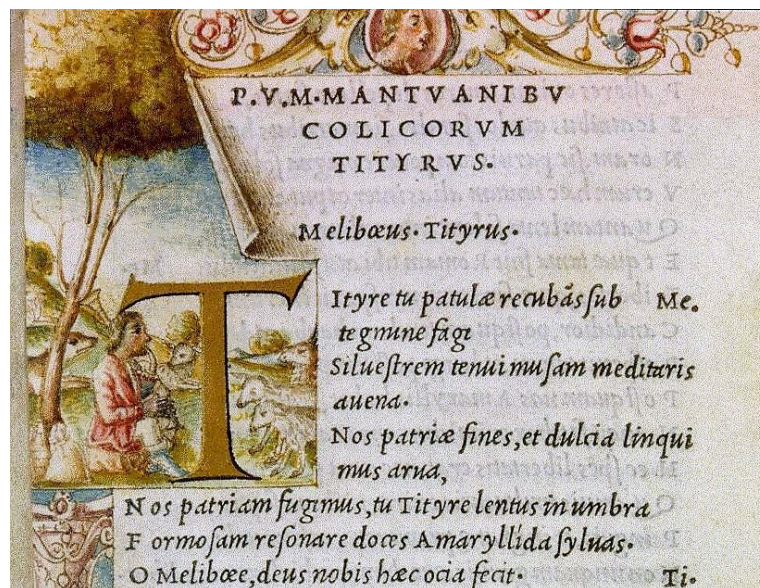 P.V.M.MANTVANI BV
COLICORVM
TITYRVS.
Melibœus. Tityrus.
TItyre tu patulæ recubãs ſub Me.
tegmine fagi
Silueſtrem tenui muſam meditaris
auena.
Nos patriæ fines, et dulcia linqui
mus arua,
Nos patriam fugimus, tu Tityre lentus in umbra
Formoſam reſonare doces Amaryllida ſyluas.
O Melibœe, deus nobis hæc ocia fecit. Ti.